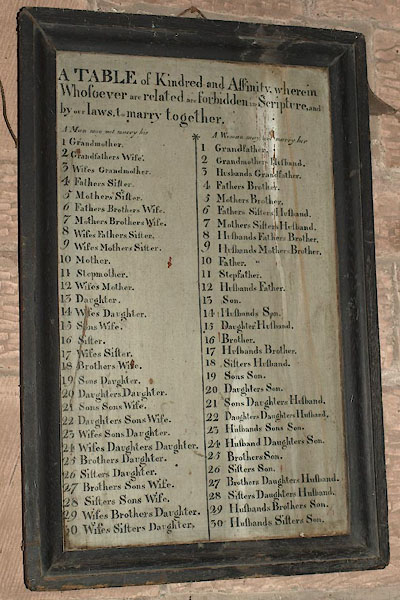 A TABLE of Kindred and Affinity, wherein
Whosoever are related are forbidden in Scripture, and
by our laws, to marry together.
A Man may not marry his
1 Grandmother.
2 Grandfathers Wife.
3 Wifes Grandmother.
4 Fathers Sister.
5 Mothers Sister.
6 Fathers Brothers Wife.
7 Mothers Brothers Wife.
8 Wifes Fathers Sister.
9 Wifes Mothers Sister.
10 Mother.
11 Stepmother.
12 Wifes Mother.
13 Daughter.
14 Wifes Daughter.
15 Sons Wife.
16 Sister.
17 Wifes Sister.
18 Brothers Wife.
19 Sons Daughter.
20 Daughters Daughter.
21 Sons Sons Wife.
22 Daughters Sons Wife.
23 Wifes Sons Daughter.
24 Wifes Daughters Daughter.
25 Brothers Daughter.
26 Sisters Daughter.
27 Brothers Sons Wife.
28 Sisters Sons Wife.
29 Wifes Brothers Daughter.
30 Wifes Sisters Daughter.
A Woman may not marry her
1 Grandfather.
2 Grandmothers Husband.
3 Husbands Grandfather.
4 Fathers Brother.
5 Mothers Brother.
6 Fathers Sisters Husband.
7 Mothers Sisters Husband.
8 Husbands Fathers Brother.
9 Husbands Mothers Brother.
10 Father.
11 Stepfather.
12 Husbands Father.
13 Son.
14 Husbands Son.
15 Daughters Husband.
16 Brother.
17 Husbands Brother.
18 Sisters Husband.
19 Sons Son.
20 Daughters Son.
21 Sons Daughters Husband.
22 Daughters Daughters Husband.
23 Husbands Sons Son.
24 Husband Daughters Son.
25 Brothers Son.
26 Sisters Son.
27 Brothers Daughters Husband.
28 Sisters Daughters Husband.
29 Husbands Brothers Son.
30 Husbands Sisters Son.